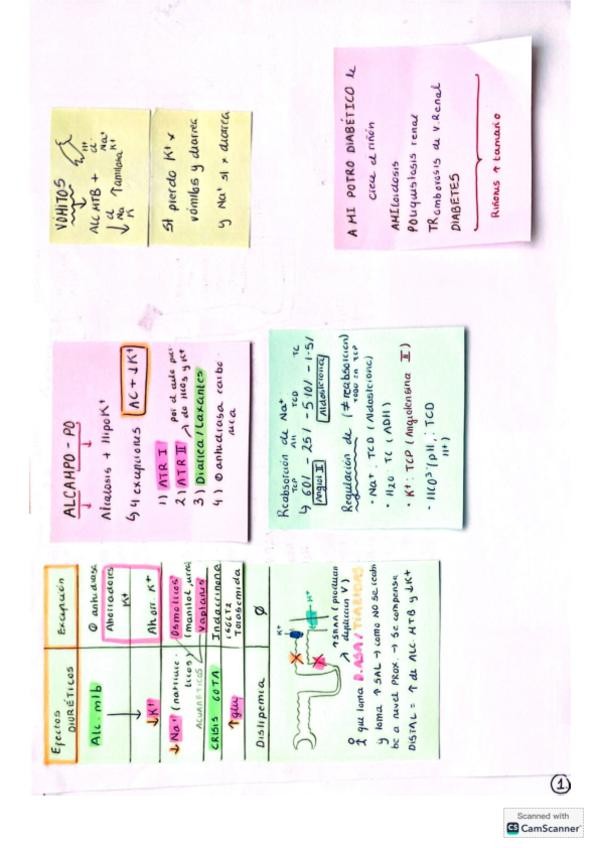 Efectos DIURÉTICOS
Excepción
Alc. mtb
⊖ anhidrasa
Ahorradores K+
↓K+
Ahorr K+
↓ Na+ (natriure.
Osmóticos
(manitol, urea)
Vaptanes
ACUARÉTICOS
CRISIS GOTA
Indacrinona
↑glu
iSGLT2
Torasemida
Dislipemia
Ø
K+
H+
↑SRAA (producen
depleción V)
que toma D.ASA/TIAZIDAS
y toma ↑ SAL → como NO se reab
be a nivel PROX. → Se compensa
DISTAL = ↑ de ALC. MTB y ↓K+
ALCAMPO-PO
Alcalosis + Hipo K+
↳ 4 excepciones
AC + ↓K+
1) ATR I
2) ATR II
3) Diarrea/Laxantes
4) ⊖ anhidrasa carbó
nica
Reabsorción de Na+
TCP AH TCD TC
↳ 60% - 25% - 5-10% - 1-5%
Angio II
Aldosterona
Regulación de (≠ reabsorción)
TODO EN TCP
· Na+: TCD (Aldosterona)
· H2O: TC (ADH)
· K+: TCP (Angiotensina II)
· HCO3- (pH): TCD
H+
VÓMITOS
ALC. MTB +
↓ Cl
Na
K
↑
Cl-
Na+
K+
SI pierdo K+ x
vómitos y diarrea
y Na+ sí x diarrea
A MI POTRO DIABÉTICO le
crece el riñón
AMIloidosis
POliquistosis renal
TRomborosis de V. Renal
DIABETES
Riñones ↑ tamaño
1.
Scanned with
CS CamScanner